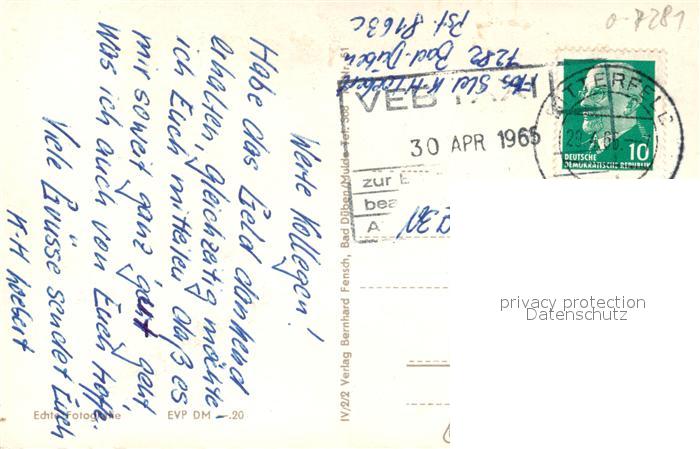 Werte Kollegen!
Habe das Geld dankend
erhalten, gleichzeitig möchte
ich Euch mitteilen daß es
mir soweit ganz gut geht
was ich auch von Euch hoffe.
Viele Grüsse sendet Euch
K-H
Echte Fotografie EVP DM —.20
IV/2/2 Verlag Bernhard Fensch, Bad Düben/Mulde Tel. 308
K-H
7282 Bad-Düben
Pst. 8163c
o-7281
VEB
30 APR 1965
zur
bea
A
TTERFELD
10
DEUTSCHE
DEMOKRATISCHE REPUBLIK
privacy protection
Datenschutz